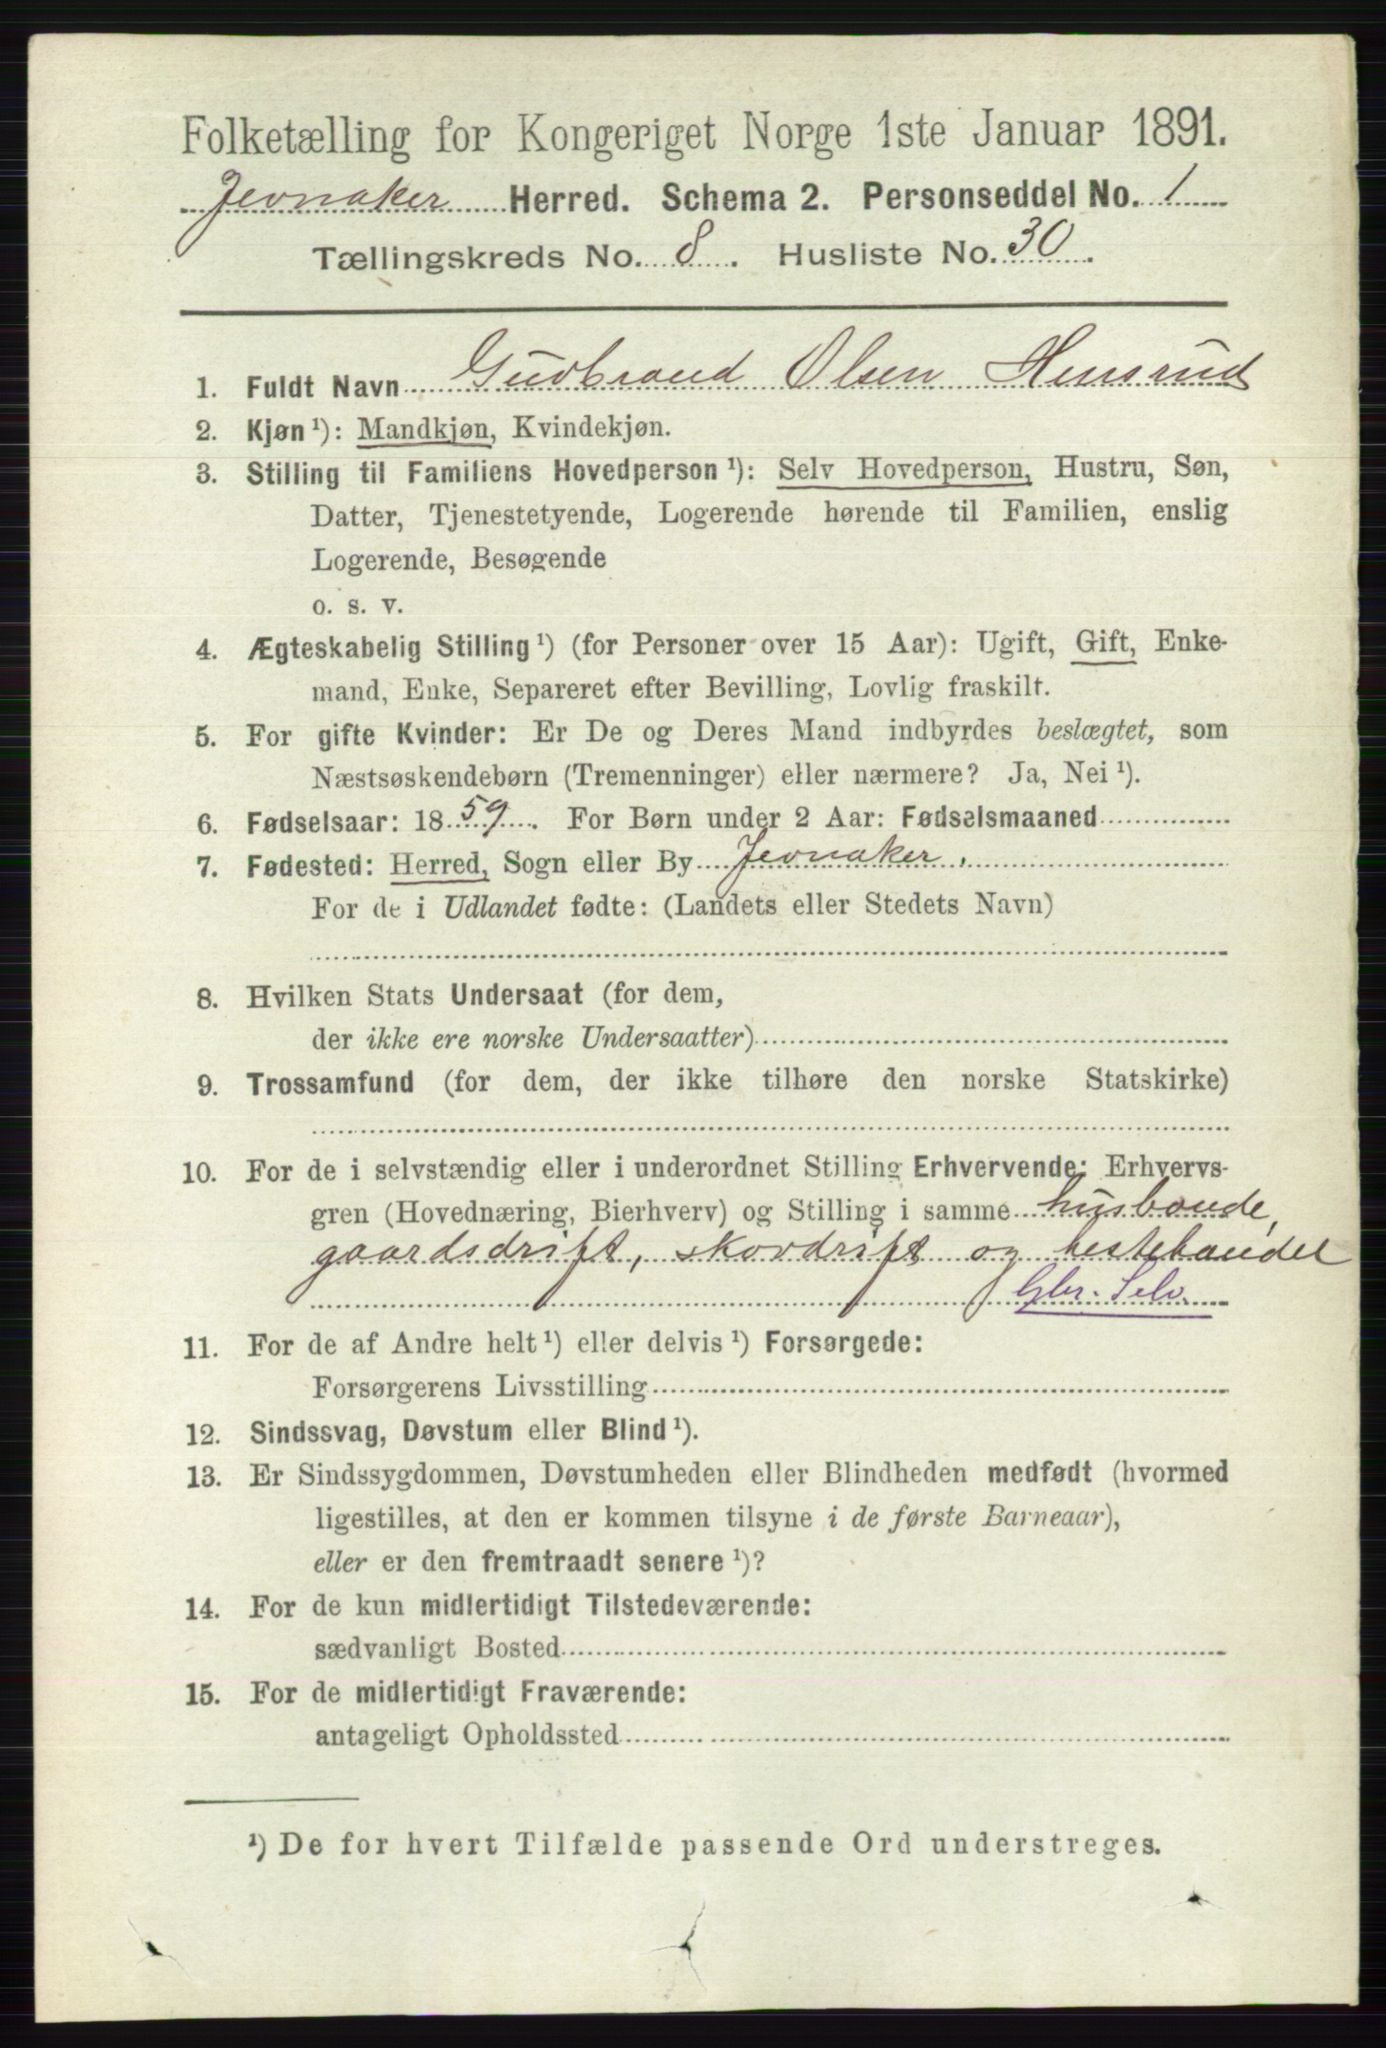 Folketælling for Kongeriget Norge 1ste Januar 1891.
Jevnaker Herred. Schema 2. Personseddel No. 1
Tællingskreds No. 8. Husliste No. 30.
1. Fuldt Navn Gudbrand Olsen Hensrud
2. Kjøn¹): Mandkjøn, Kvindekjøn.
3. Stilling til Familiens Hovedperson¹): Selv Hovedperson, Hustru, Søn,
Datter, Tjenestetyende, Logerende hørende til Familien, enslig
Logerende, Besøgende
o. s. v.
4. Ægteskabelig Stilling¹) (for Personer over 15 Aar): Ugift, Gift, Enke-
mand, Enke, Separeret efter Bevilling, Lovlig fraskilt.
5. For gifte Kvinder: Er De og Deres Mand indbyrdes beslægtet, som
Næstsøskendebørn (Tremenninger) eller nærmere? Ja, Nei¹).
6. Fødselsaar: 1859. For Børn under 2 Aar: Fødselsmaaned
7. Fødested: Herred, Sogn eller By Jevnaker.
For de i Udlandet fødte: (Landets eller Stedets Navn)
8. Hvilken Stats Undersaat (for dem,
der ikke ere norske Undersaatter)
9. Trossamfund (for dem, der ikke tilhøre den norske Statskirke)
10. For de i selvstændig eller i underordnet Stilling Erhvervende: Erhvervs-
gren (Hovednæring, Bierhverv) og Stilling i samme husbonde,
gaardsdrift, skovdrift og hestehandel
Gbr. Selv.
11. For de af Andre helt¹) eller delvis¹) Forsørgede:
Forsørgerens Livsstilling
12. Sindssvag, Døvstum eller Blind¹).
13. Er Sindssygdommen, Døvstumheden eller Blindheden medfødt (hvormed
ligestilles, at den er kommen tilsyne i de første Barneaar),
eller er den fremtraadt senere¹)?
14. For de kun midlertidigt Tilstedeværende:
sædvanligt Bosted
15. For de midlertidigt Fraværende:
antageligt Opholdssted
¹) De for hvert Tilfælde passende Ord understreges.